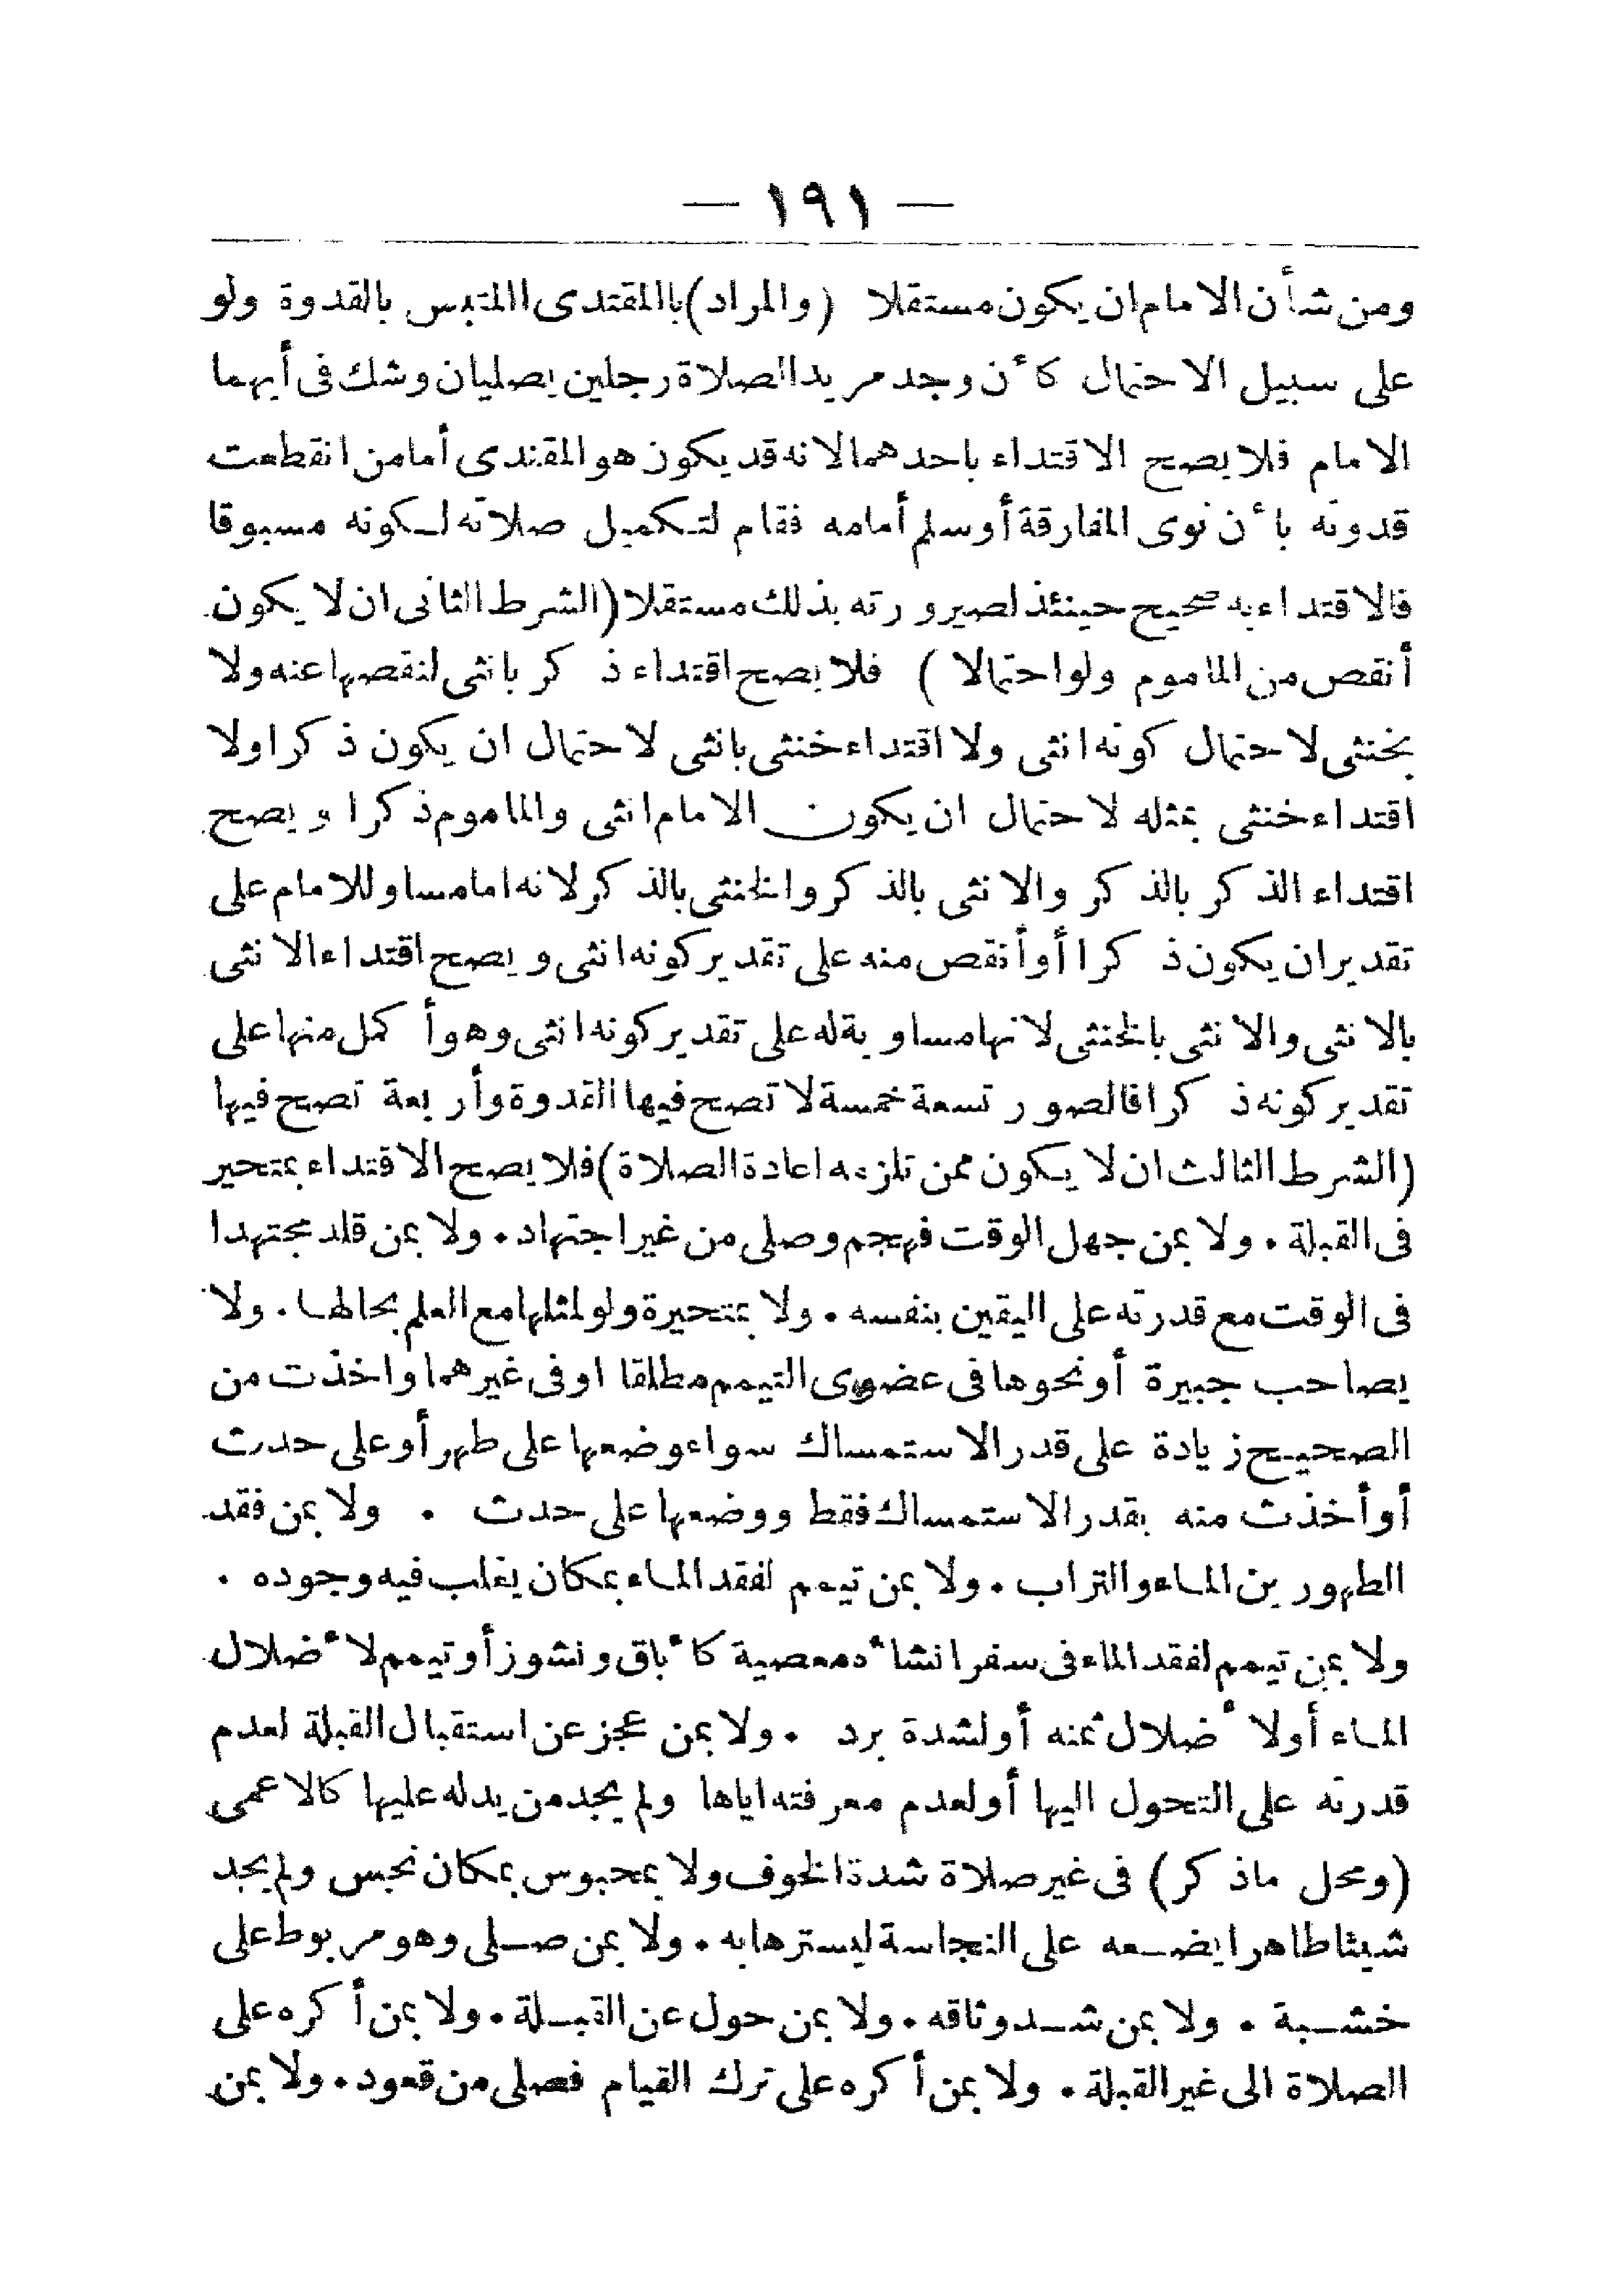 — ١٩١ —
ومن شأن الامام ان يكون مستقلا (والمراد) بالمقتدى المتلبس بالقدوة ولو
على سبيل الاحتمال كأن وجد مريد الصلاة رجلين يصليان وشك فى أيهما
الامام فلا يصح الاقتداء باحدهما لانه قد يكون هو المقتدى أما من انقطعت
قدوته بأن نوى المفارقة أو سلم أمامه فقام لتكميل صلاته لكونه مسبوقا
فالاقتداء به صحيح حينئذ لصيرورته بذلك مستقلا (الشرط الثانى ان لا يكون
أنقص من المأموم ولو احتمالا) فلا يصح اقتداء ذكر بانثى لنقصها عنه ولا
بخنثى لاحتمال كونه انثى ولا اقتداء خنثى بانثى لاحتمال ان يكون ذكرا ولا
اقتداء خنثى بمثله لاحتمال ان يكون الامام انثى والمأموم ذكرا ويصح
اقتداء الذكر بالذكر والانثى بالذكر والخنثى بالذكر لانه اما مساو للامام على
تقدير ان يكون ذكرا أو أنقص منه على تقدير كونه انثى ويصح اقتداء الانثى
بالانثى والانثى بالخنثى لانها مساوية له على تقدير كونه انثى وهو أكمل منها على
تقدير كونه ذكرا فالصور تسعة خمسة لا تصح فيها القدوة وأربعة تصح فيها
(الشرط الثالث ان لا يكون ممن تلزمه اعادة الصلاة) فلا يصح الاقتداء بمتحير
فى القبلة . ولا بمن جهل الوقت فهجم وصلى من غير اجتهاد . ولا بمن قلد مجتهدا
فى الوقت مع قدرته على اليقين بنفسه . ولا بمتحيرة ولو لمثلها مع العلم بحالها . ولا
بصاحب جبيرة أو نحوها فى عضوى التيمم مطلقا او فى غيرهما واخذت من
الصحيح زيادة على قدر الاستمساك سواء وضعها على طهر أو على حدث
أو أخذت منه بقدر الاستمساك فقط ووضعها على حدث . ولا بمن فقد
الطهورين الماء والتراب . ولا بمن تيمم لفقد الماء بمكان يغلب فيه وجوده .
ولا بمن تيمم لفقد الماء فى سفر انشأه معصية كأباق ونشوز أو تيمم لأضلال
الماء أو لأضلال ثمنه أو لشدة برد . ولا بمن عجز عن استقبال القبلة لعدم
قدرته على التحول اليها أو لعدم معرفته اياها ولم يجد من يدله عليها كالاعمى
(ومحل ماذكر) فى غير صلاة شدة الخوف ولا بمحبوس بمكان نجس ولم يجد
شيئا طاهرا يضعه على النجاسة ليسترها به . ولا بمن صلى وهو مربوط على
خشبة . ولا بمن شد وثاقه . ولا بمن حول عن القبلة . ولا بمن أكره على
الصلاة الى غير القبلة . ولا بمن أكره على ترك القيام فصلى من قعود . ولا بمن